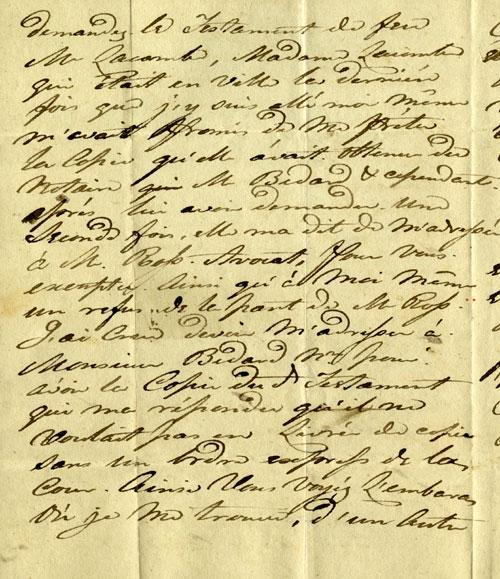 demander le Testament de feu
Mr Lacombe, Madame Lacombe
qui était en ville la dernièn
fois que j'y suis allé moi même
m'avait promis de me prêter
la Copie qu'elle avait obtenue du
Notaire Mr Bedard & cependant
après lui avoir demander une
seconde fois, elle ma dit de m'adresser
à Mr Ross Avocat, pour vous
ainsi qu'à moi même
un refus de la part de Mr Ross.
J'ai Crus devoir m'adresser à
Monsieur Bedard Nre pour
avoir la Copie du dt Testament
qui ma répondu qu'il ne
voulait pas en Livrée de copie
sans un ordre express de la
cour. Ainsi Vous voyés L'embaras
où je me trouve, d'un autre